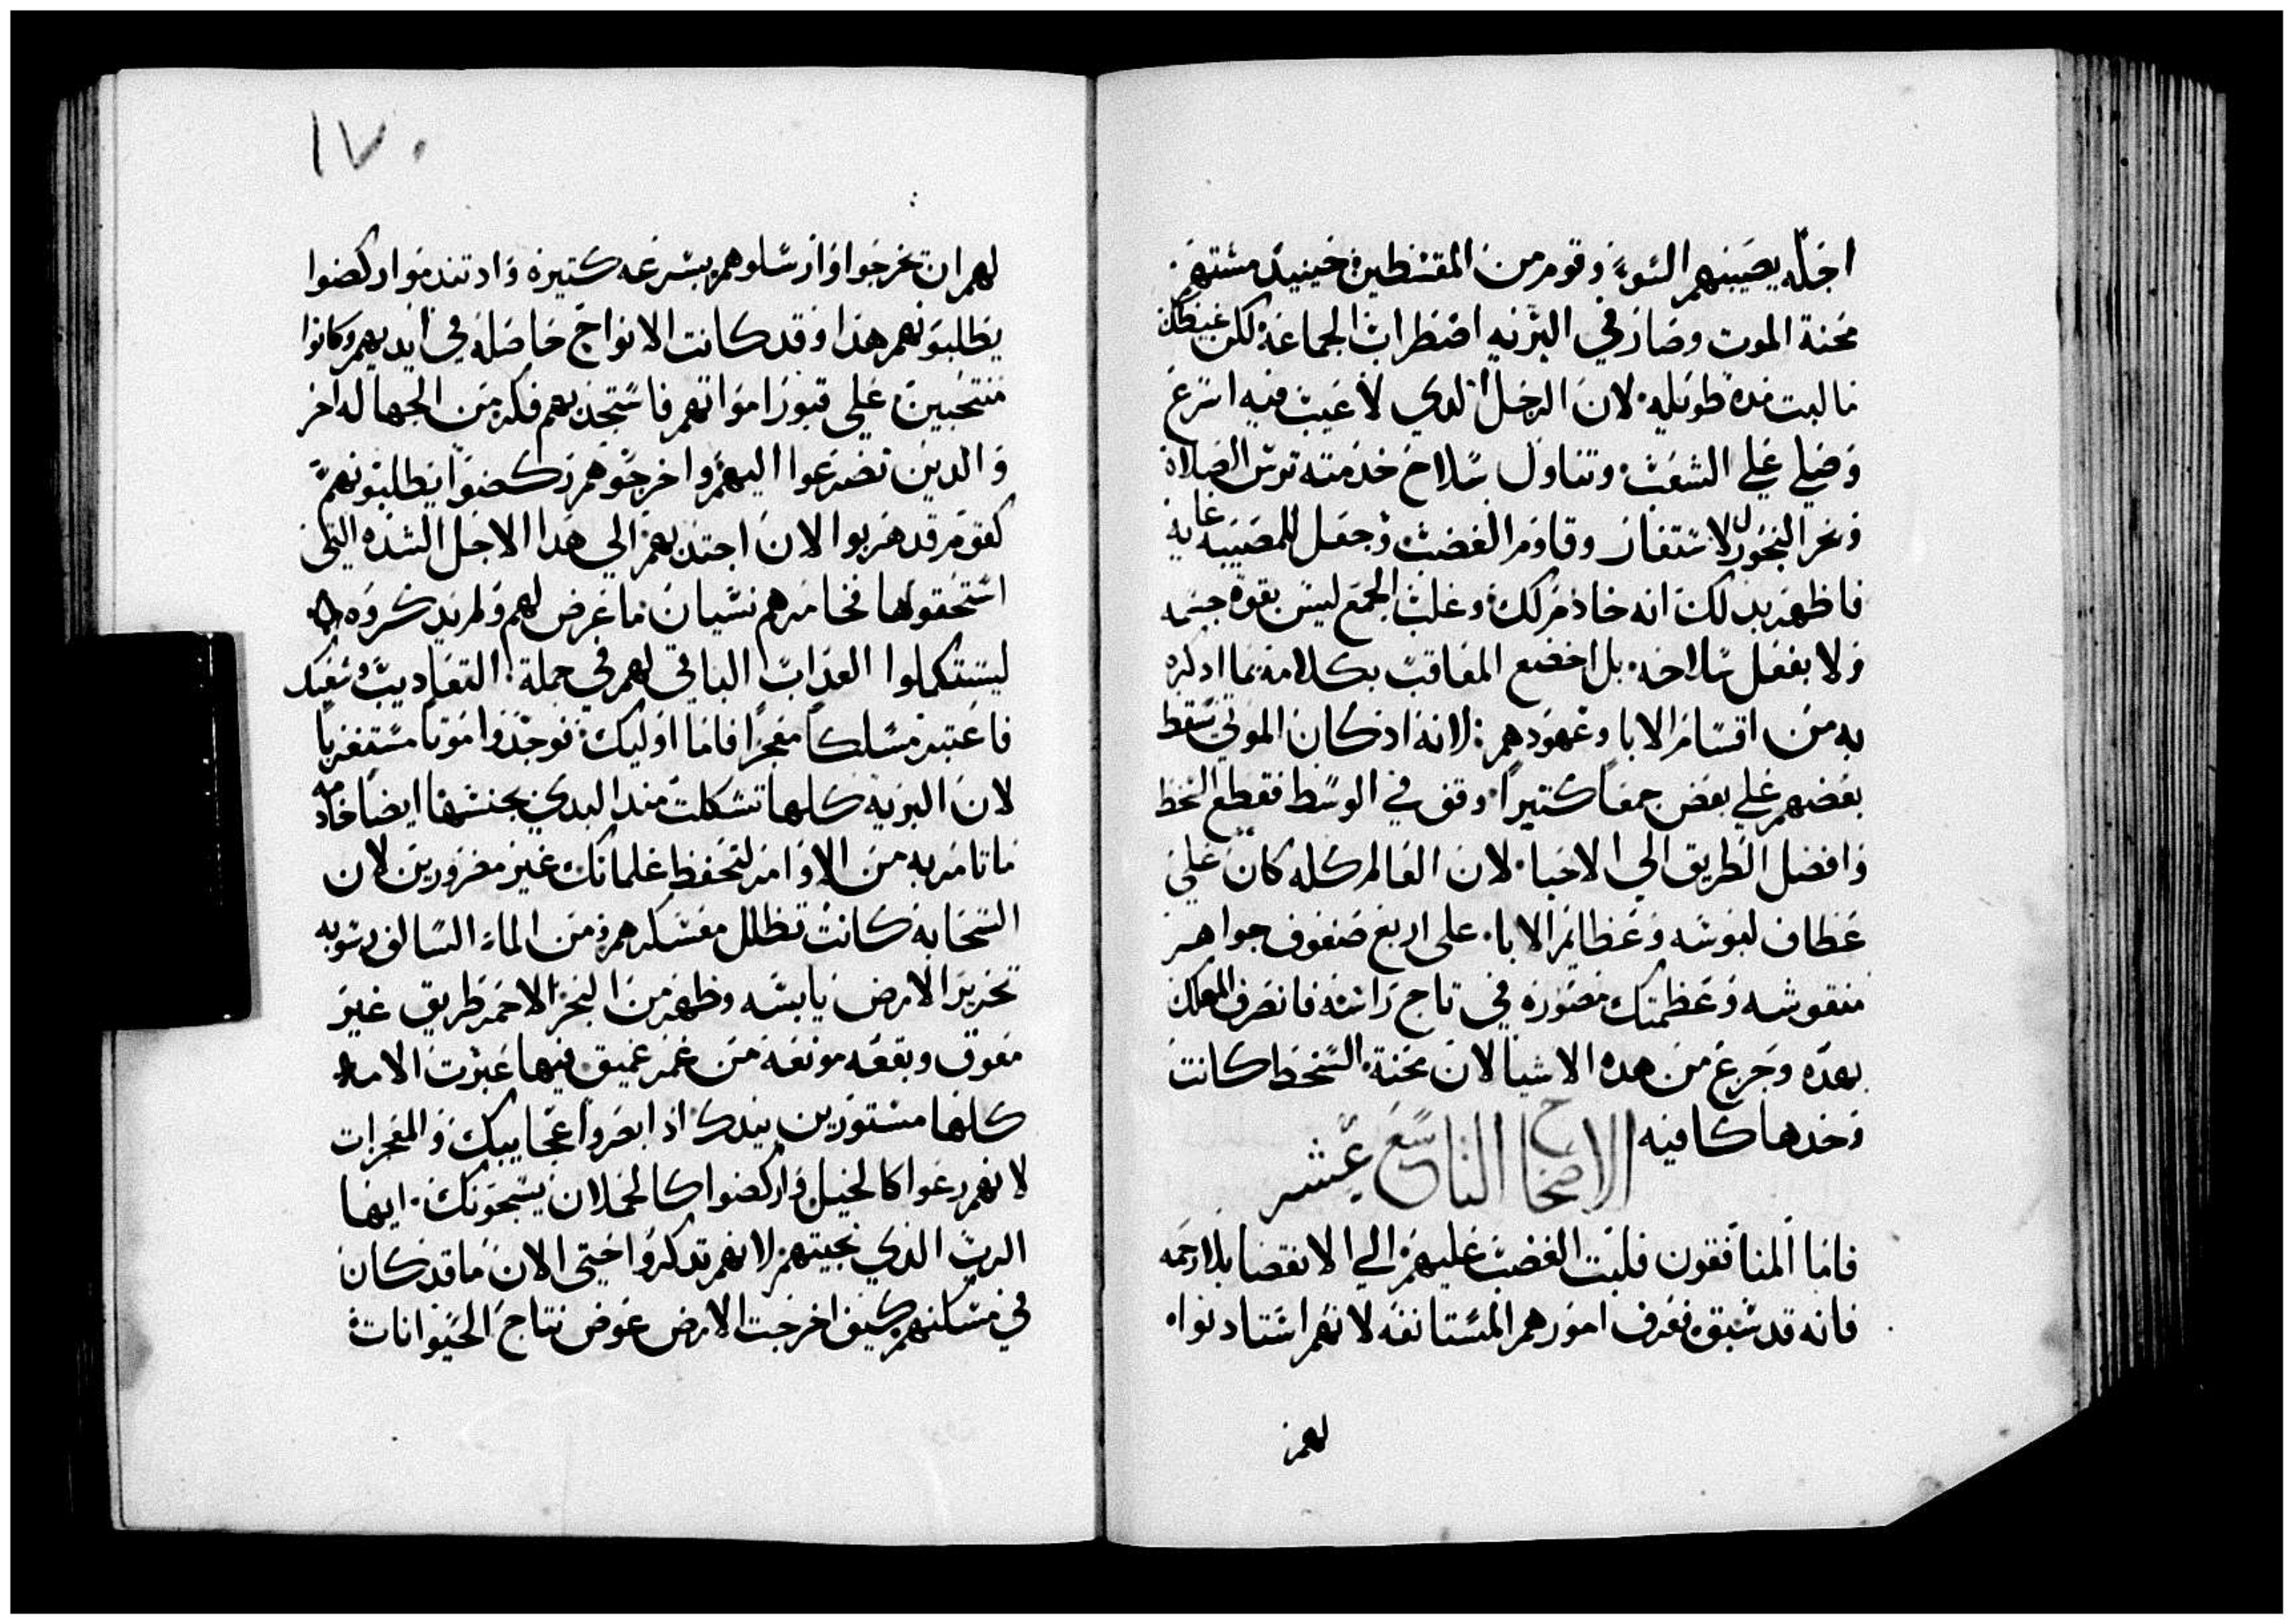 اجله يصيبهم السوء وقوم من المقسطين حينيد مستهم
محنة الموت وصار في البريه اضطراب الجماعة لكن غيظك
ما لبت مده طويله لان الرجل الدي لا عيب فيه اسرع
وصلي علي الشعب وتناول سلاح خدمته ترس الصلاة
وبخر البخور للاستغفار وقاوم الغضب وجعل للمصيبه غايه
فاظهر بدلك انه خادم لك وغلب الجمع ليس بقوة جسمه
ولا بفعل سلاحه بل اخضع المعاقب بكلامه بما ادكره
به من اقسام الابا وعهودهم لانه اد كان الموتي سقط
بعضهم علي بعض جمعا كتيرا وقف في الوسط فقطع السخط
وافضل الطريق الي الاحيا لان العالم كله كان علي
عطاف لبوسه وعظايم الابا علي اربع صفوف جواهر
منقوشه وعظمتك مصوره في تاج راسه فانصرف المهلك
بعده وجزع من هده الاشيا لان محنة السخط كانت
وحدها كافيه الاصحاح التاسع عشر
فاما المنافقون فلبت الغضب عليهم الي الانقضا بلا رحمه
فانه قد سبق فعرف امورهم المستانفه لانهم استادنوا
لهم
١٧٠
لهم ان يخرجوا وارسلوهم بسرعه كتيره واد تندموا ركضوا
يطلبونهم هدا وقد كانت الانواح حاصله في ايديهم وكانوا
منتحبين علي قبور امواتهم فاستجدبهم فكر من الجهاله اخر
والدين تضرعوا اليهم واخرجوهم ركضوا يطلبونهم
كقوم قد هربوا لان اجتدبهم الي هدا الاجل الشده التي
استحقوها فخامرهم نسيان ما عرض لهم ولم يدكروه
ليستكملوا العداب الباقي لهم في جملة التعاديب وشعبك
فاعتبر مسلكا معجزا فاما اوليك فوجدوا موتا مستغربا
لان البريه كلها تشكلت مند البدي بجنسها ايضا خادمه
ما تامر به من الاوامر لتحفظ غلمانك غير مضرورين لان
السحابه كانت تظلل معسكرهم ومن الماء السالف رسوبه
تحرير الارض يابسه وظهر من البحر الاحمر طريق غير
معوق وبقعه مونعه من غمر عميق فيها عبرت الامه
كلها مستورين بيدك اد ابصروا عجايبك والمعجزات
لانهم رعوا كالخيل واركضوا كالحملان يسبحونك ايها
الرب الدي نجيتهم لانهم تدكروا حتي الان ما قد كان
في مسكنهم كيف اخرجت الارض عوض نتاج الحيوانات